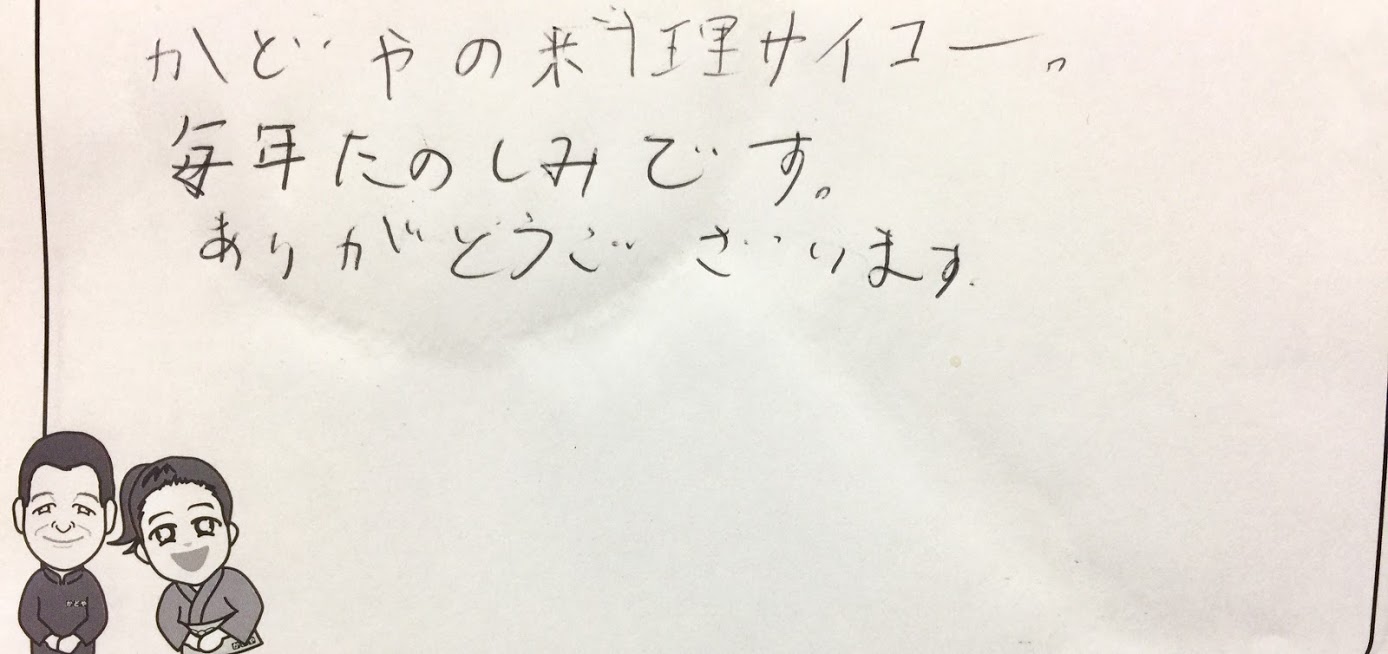 かどやの料理サイコー。
毎年たのしみです。
ありがとうございます.
かどや